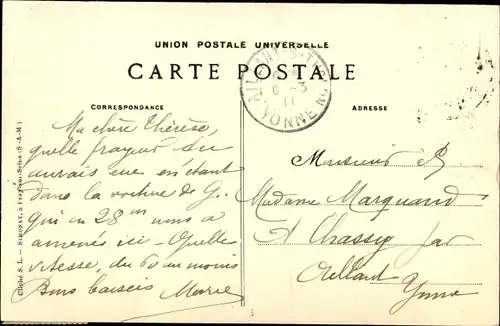 UNION POSTALE UNIVERSELLE
CARTE POSTALE
CORRESPONDANCE
ADRESSE
Ma chère Thérèse,
quelle frayeur tu
aurais eue en étant
dans la voiture de G.
qui en 28 m nous a
amenés ici - Quelle
vitesse, du 60 au moins
Bons baisers Marie
AILLANT-S-THOLON
6 -3
11
YONNE
Monsieur &
Madame Marquand
A Chassy par
Aillant
Yonne
Cliché S. L. —